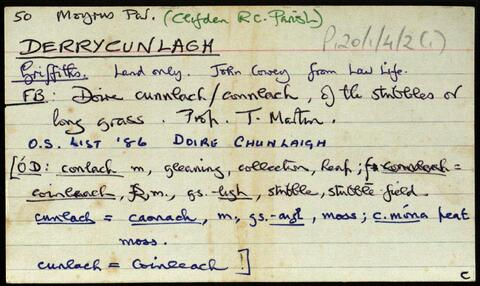 50 Moyrus Par. (Clifden R.C. Parish)
P120/1/4/2(i)
DERRYCUNLAGH
Griffiths. Land only. John Covey from Law Life.
FB: Doire cunnlach/connlach, of the stubbles or
long grass. Prop. T. Martin.
O.S. LIST '86 DOIRE CHUNLAIGH
[ÓD: conlach m, gleaning, collection, heap; =
coinleach, m, gs. -ligh, stubble, stubble-field.
cunlach = caonach, m, gs. -aigh, moss; c. móna peat
moss.
cunlach = Coinleach !]
C